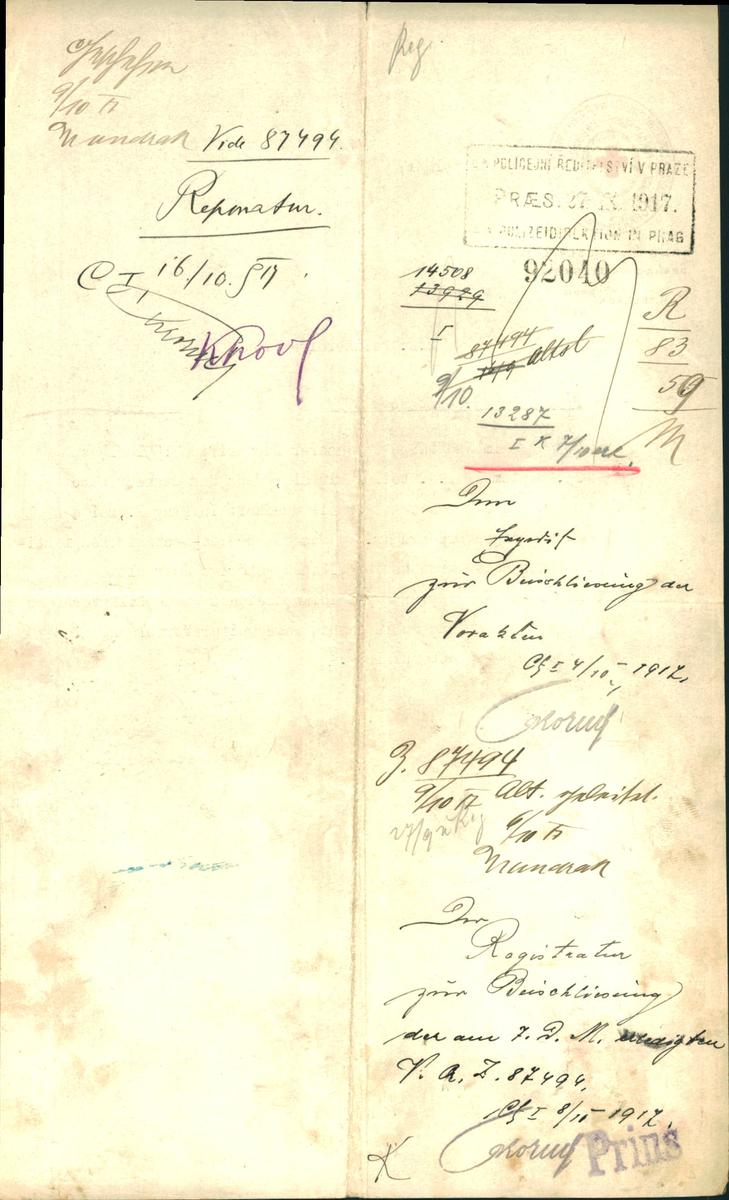 9/10 17
Mundrak Vide 87494.
Reponatur.
C I 16/10 917.
Reg
K. K. POLICEJNÍ ŘEDITELSTVÍ V PRAZE
PRÆS. 27 IX. 1917.
K. K. POLIZEIDIREKTION IN PRAG
92040
14508
13929
I
87494
9/10.
13287
I
R
83
59
M
Dem
Expedit
zur Beischliessung der
Vorakten
I 4/10 1917.
Z. 87494
9/10 17
27/9 Reg 6/10 17
Mundrak
Der
Registratur
zur Beischliessung
der am 7. D. M. erledigten
V. A. Z. 87494.
I 8/10 1917.
Prins